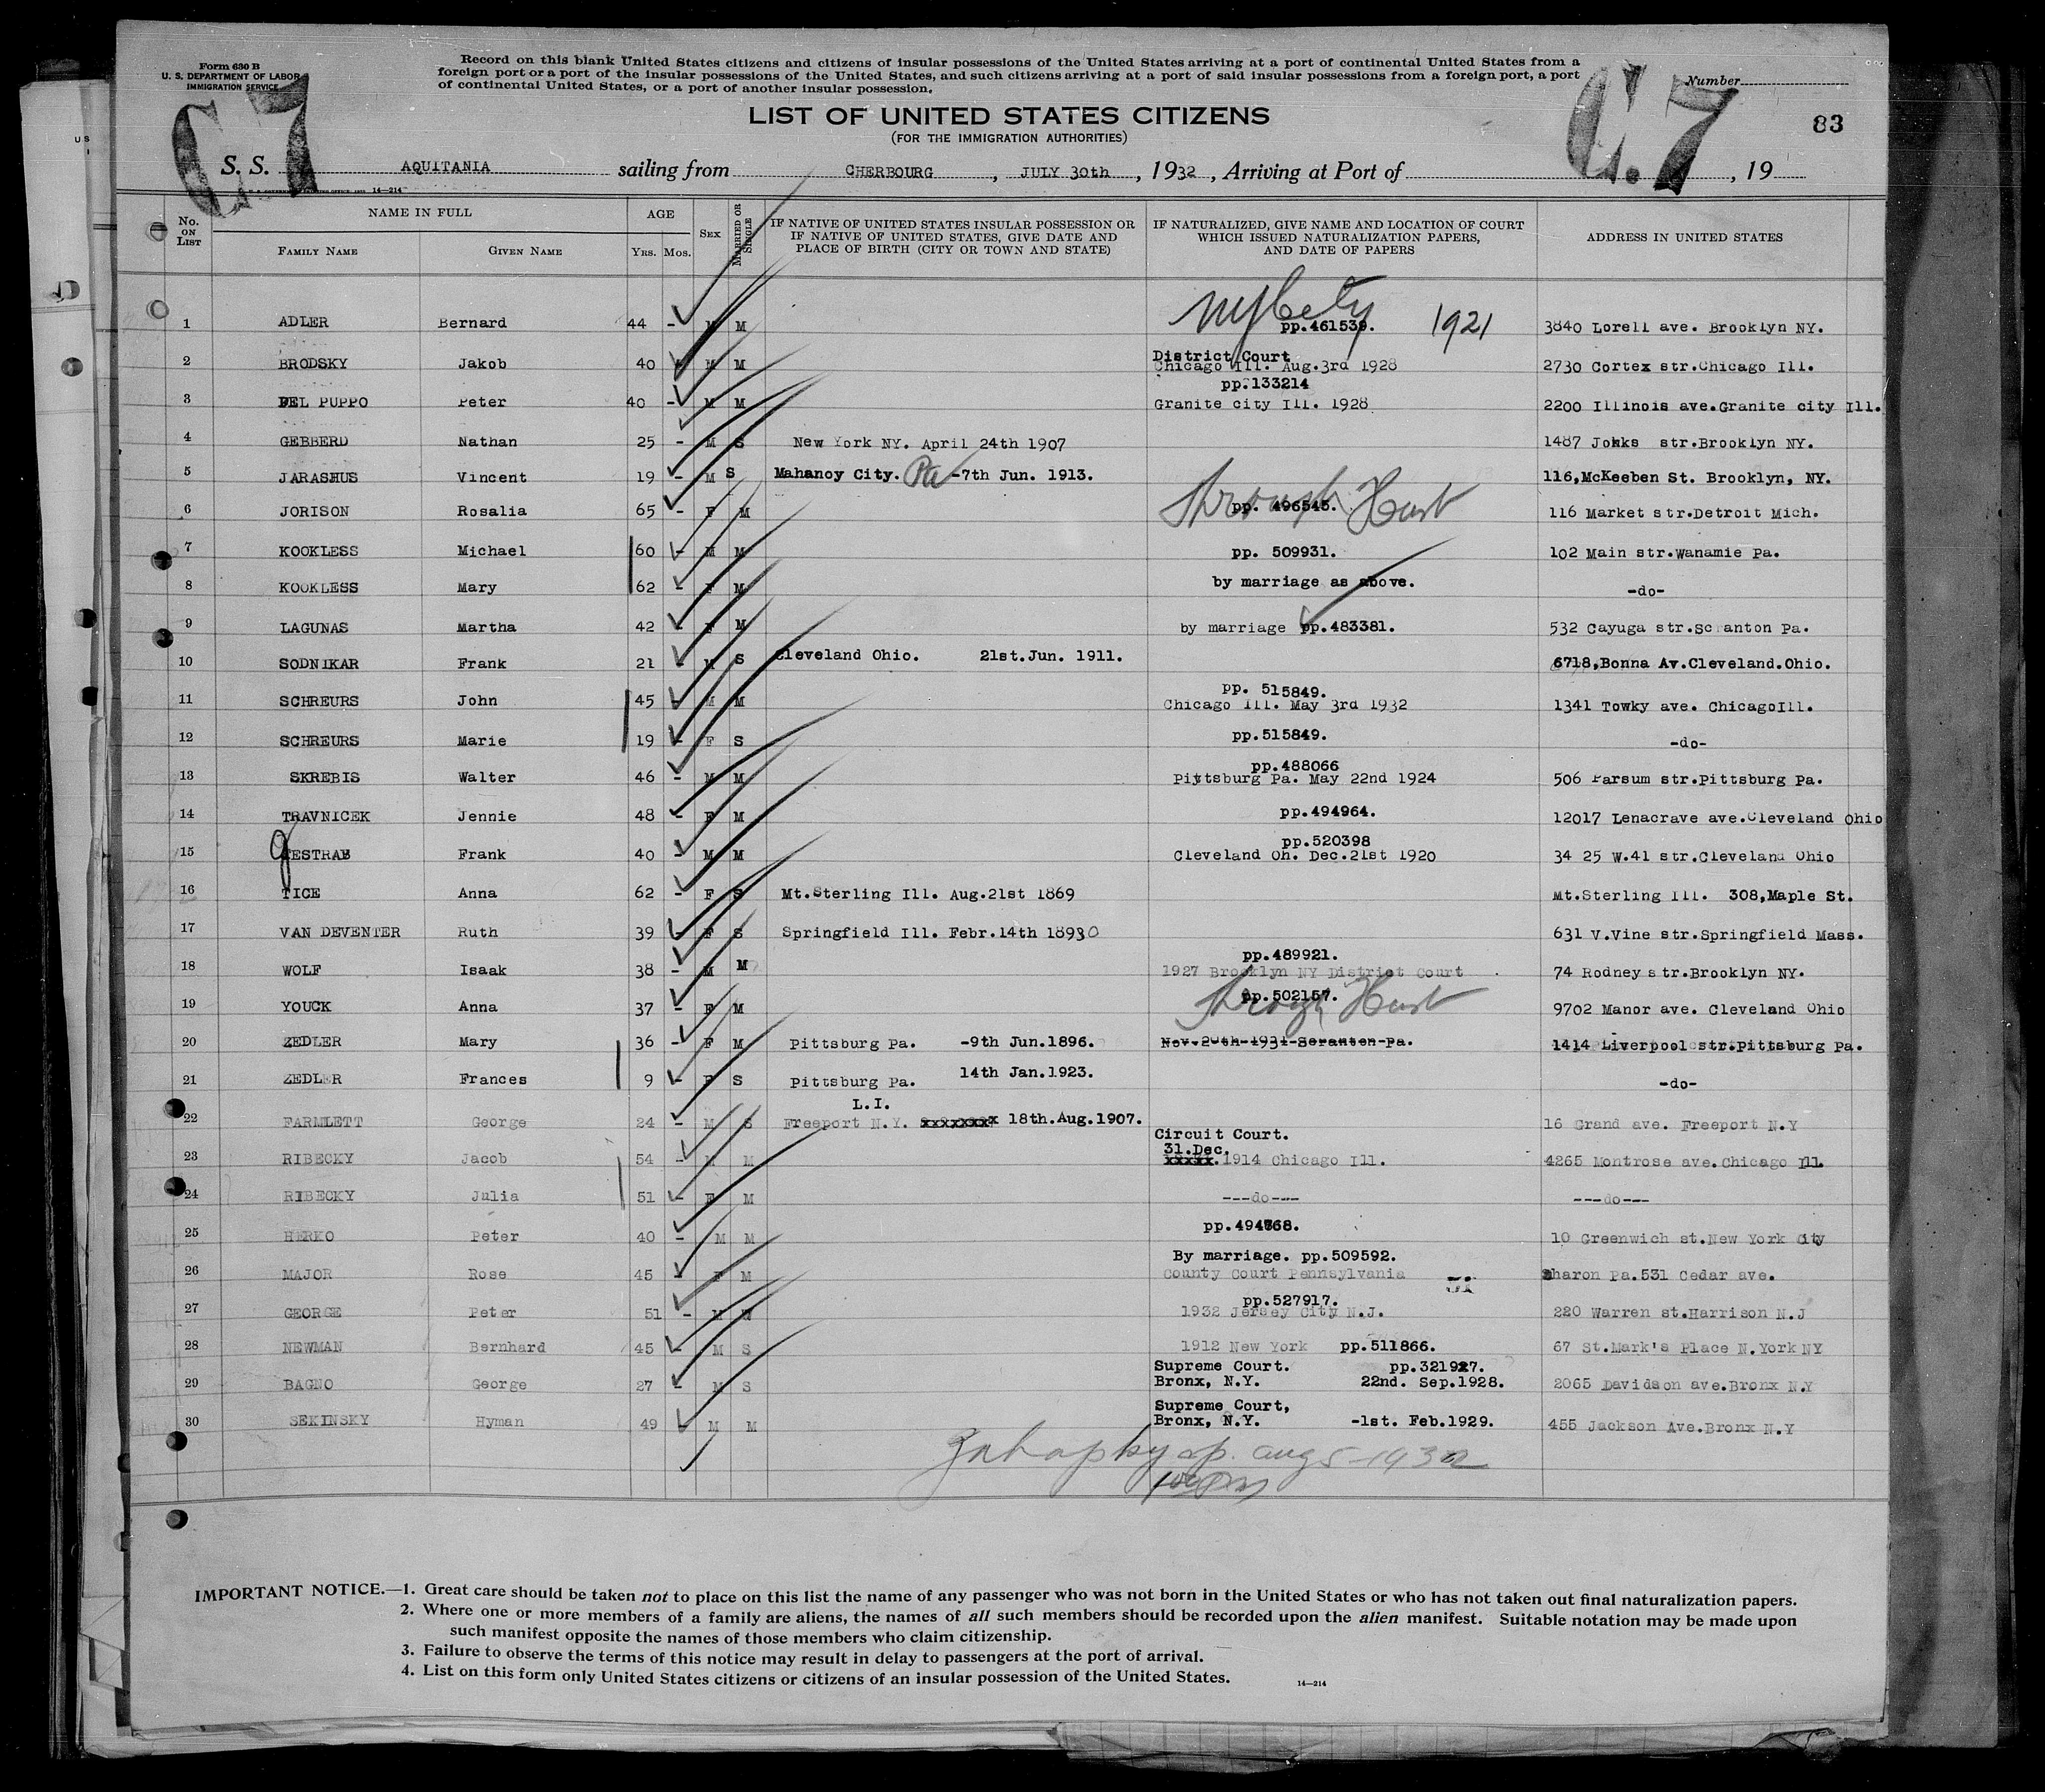 Form 630 B
U. S. DEPARTMENT OF LABOR
IMMIGRATION SERVICE
Record on this blank United States citizens and citizens of insular possessions of the United States arriving at a port of continental United States from a
foreign port or a port of the insular possessions of the United States, and such citizens arriving at a port of said insular possessions from a foreign port, a port
of continental United States, or a port of another insular possession.
Number
C.7 C.7
LIST OF UNITED STATES CITIZENS
(FOR THE IMMIGRATION AUTHORITIES)
83
S. S. AQUITANIA sailing from CHERBOURG, JULY 30th, 1932, Arriving at Port of , 19
14-214
No. ON LIST NAME IN FULL FAMILY NAME GIVEN NAME AGE YRS. MOS. SEX MARRIED OR SINGLE IF NATIVE OF UNITED STATES INSULAR POSSESSION OR IF NATIVE OF UNITED STATES, GIVE DATE AND PLACE OF BIRTH (CITY OR TOWN AND STATE) IF NATURALIZED, GIVE NAME AND LOCATION OF COURT WHICH ISSUED NATURALIZATION PAPERS, AND DATE OF PAPERS ADDRESS IN UNITED STATES
1 ADLER Bernard 44 - M M NY City pp.461539. 1921 3840 Lorell ave. Brooklyn NY.
District Court
2 BRODSKY Jakob 40 - M M Chicago Ill. Aug.3rd 1928 2730 Cortex str.Chicago Ill.
pp.133214
3 DEL PUPPO Peter 40 - M M Granite city Ill. 1928 2200 Illinois ave.Granite city Ill.
4 GEBBERD Nathan 25 - M S New York NY. April 24th 1907 1487 Johks str.Brooklyn NY.
5 JARASHUS Vincent 19 - M S Mahanoy City. Pa -7th Jun. 1913. 116,McKeeben St. Brooklyn, NY.
6 JORISON Rosalia 65 - F M Through Husb pp. 496545. 116 Market str.Detroit Mich.
7 KOOKLESS Michael 60 - M M pp. 509931. 102 Main str.Wanamie Pa.
8 KOOKLESS Mary 62 - F M by marriage as above. -do-
9 LAGUNAS Martha 42 - F M by marriage pp.483381. 532 Cayuga str.Scranton Pa.
10 SODNIKAR Frank 21 - M S Cleveland Ohio. 21st.Jun. 1911. 6718,Bonna Av.Cleveland.Ohio.
pp. 515849.
11 SCHREURS John 45 - M M Chicago Ill. May 3rd 1932 1341 Towky ave. ChicagoIll.
12 SCHREURS Marie 19 - F S pp.515849. -do-
pp.488066
13 SKREBIS Walter 46 - M M Pittsburg Pa. May 22nd 1924 506 Parsum str.Pittsburg Pa.
14 TRAVNICEK Jennie 48 - F M pp.494964. 12017 Lenacrave ave.Cleveland Ohio
pp.520398
15 JESTRAB Frank 40 - M M Cleveland Oh. Dec.21st 1920 34 25 W.41 str.Cleveland Ohio
16 TICE Anna 62 - F S Mt.Sterling Ill. Aug.21st 1869 Mt.Sterling Ill. 308,Maple St.
17 VAN DEVENTER Ruth 39 - F S Springfield Ill. Febr.14th 1893 631 V.Vine str.Springfield Mass.
pp.489921.
18 WOLF Isaak 38 - M M 1927 Brooklyn NY District Court 74 Rodney str.Brooklyn NY.
19 YOUCK Anna 37 - F M Through Husb pp.502157. 9702 Manor ave. Cleveland Ohio
20 ZEDLER Mary 36 - F M Pittsburg Pa. -9th Jun.1896. Nov.20th-1931-Scranton-Pa. 1414 Liverpool str.Pittsburg Pa.
21 ZEDLER Frances 9 - F S Pittsburg Pa. 14th Jan.1923. -do-
L.I.
22 FARMLETT George 24 - M S Freeport N.Y. xxxxxxxx 18th.Aug.1907. 16 Grand ave. Freeport N.Y
Circuit Court.
31.Dec.
23 RIBECKY Jacob 54 - M M xxxxx.1914 Chicago Ill. 4265 Montrose ave.Chicago Ill.
24 RIBECKY Julia 51 - F M ---do--- ---do---
25 HERKO Peter 40 - M M pp.494768. 10 Greenwich st.New York City
By marriage. pp.509592.
26 MAJOR Rose 45 - F M County Court Pennsylvania Sharon Pa.531 Cedar ave.
pp.527917.
27 GEORGE Peter 51 - M W 1932 Jersey City N.J. 220 Warren st.Harrison N.J
28 NEWMAN Bernhard 45 - M S 1912 New York pp.511866. 67 St.Mark's Place N.York NY
Supreme Court. pp.321927.
29 BAGNO George 27 - M S Bronx, N.Y. 22nd. Sep.1928. 2065 Davidson ave.Bronx N.Y
Supreme Court,
30 SEKINSKY Hyman 49 - M M Bronx, N.Y. -1st. Feb.1929. 455 Jackson Ave.Bronx N.Y
aug 5-1932
IMPORTANT NOTICE.—1. Great care should be taken not to place on this list the name of any passenger who was not born in the United States or who has not taken out final naturalization papers.
2. Where one or more members of a family are aliens, the names of all such members should be recorded upon the alien manifest. Suitable notation may be made upon
such manifest opposite the names of those members who claim citizenship.
3. Failure to observe the terms of this notice may result in delay to passengers at the port of arrival.
4. List on this form only United States citizens or citizens of an insular possession of the United States.
14—214